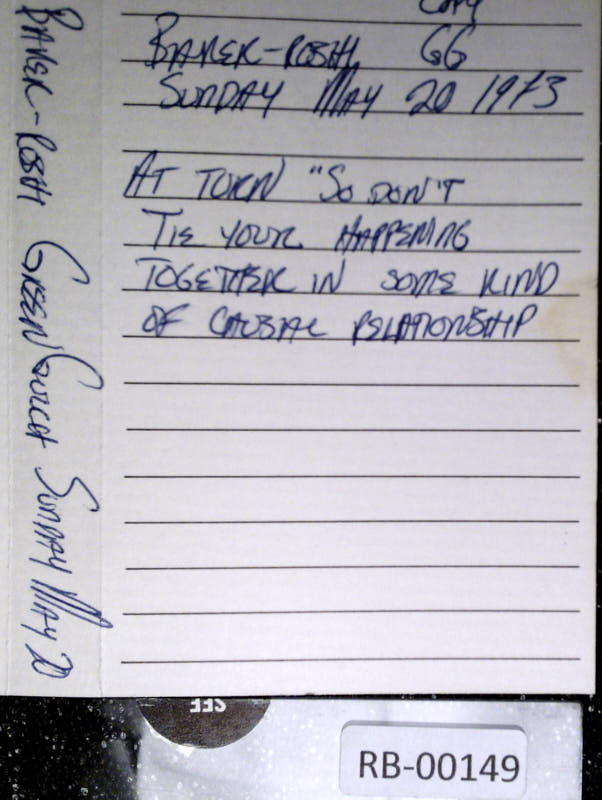 Copy
BAKER-ROSHI GG
SUNDAY MAY 20 1973
AT TURN "SO DON'T
TIE YOUR HAPPENING
TOGETHER IN SOME KIND
OF CAUSAL RELATIONSHIP
BAKER-ROSHI GREEN GULCH SUNDAY MAY 20
SEE
RB-00149